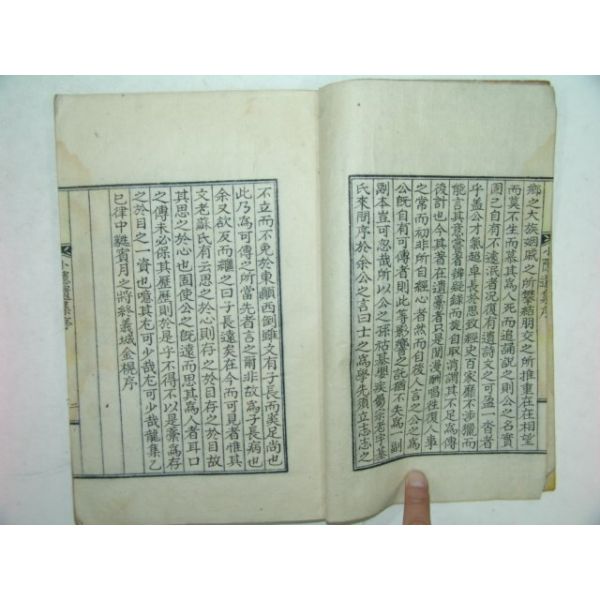 鄕之大族姻戚之所攀結朋交之所推重在在相望
而莫不生而慕其爲人死而追誦說之則公之名實
固已有不遠泯者況復有遺詩文之可盈一沓者
乎盖公才氣超卓長於思致經史百家靡不涉獵而
能言其意嘗著辨疑錄而莫自取
後計也今其著在遺藁者只是閒漫酬唱往復人事
之常而初非所自經心者然而自後人言之公之爲
公旣自有可傳者則此等影響之託猶不失爲一副
副本豈可忽哉所以公之孫
氏來問序於余公之言曰士之爲學先須立志志之
不立而不免於東顚西倒雖文有子長而美足尚也
此乃爲可傳公所當先者言之爾非故爲子長病也
余又欲反而繼之曰子長遠矣在今而可見者惟其
文老蘇氏有云思之於心則存之於目存之於目故
其思之於心也固使公之旣遠而思其爲者耳口
之傳未必保其歷歷則於是乎不得不以是藁爲存
之於目之一資也噫其尤可少哉尤可少哉龍集乙
已律中蕤賓月之將終義城金㮨序